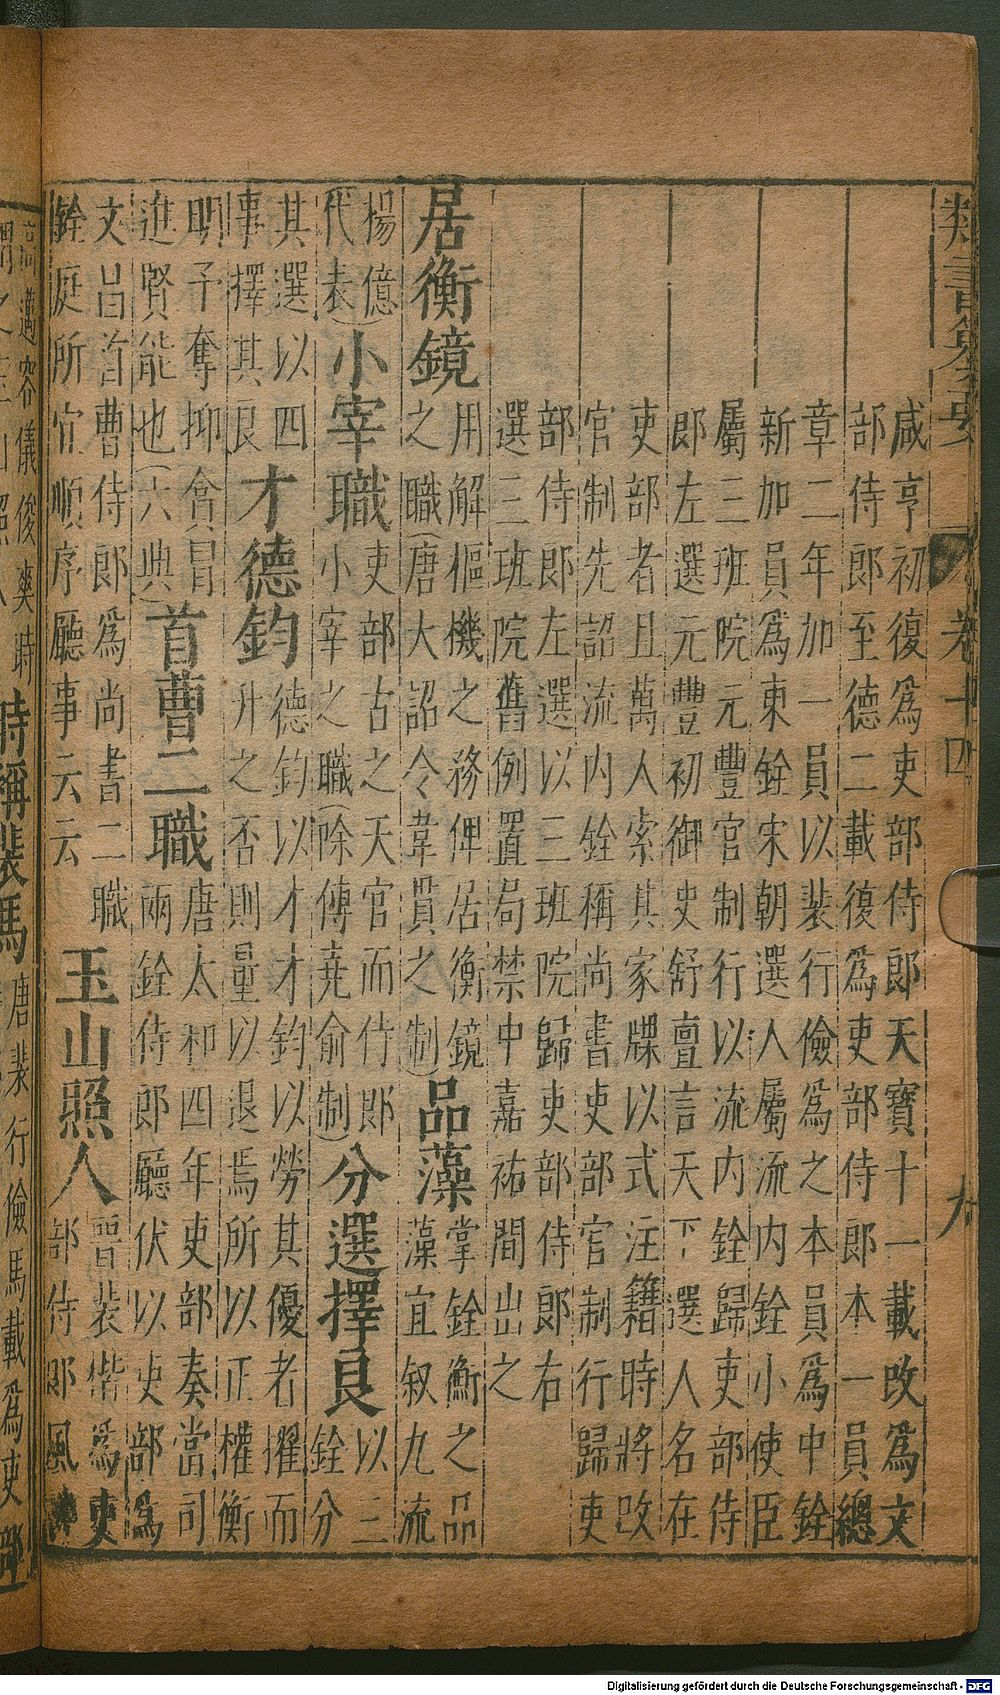 類書纂要 卷十四 九
咸亨初復爲吏部侍郎天寶十一載改爲文
部侍郎至德二載復爲吏部侍郎本一員總
章二年加一員以裴行儉爲之本員爲中銓
新加員爲東銓宋朝選人屬流内銓小使臣
屬三班院元豐官制行以流内銓歸吏部侍
郎左選元豐初御史舒亶言天下選人名在
吏部者且萬人索其家牒以式注籍時將改
官制先詔流内銓稱尚書吏部官制行歸吏
部侍郎左選以三班院歸吏部侍郎右
選三班院舊例置局禁中嘉祐間出之
居衡鏡
用解樞機之務俾居衡鏡
之職(唐大詔令韋貫之制)
品藻
掌銓衡之品
藻宜叙九流
楊億
代表)
小宰職
吏部古之天官而侍郎
小宰之職(除傅堯俞制)
分選擇良
以三
銓分
其選以四
事擇其良
才德鈞
德鈞以才才鈞以勞其優者擢而
升之否則量以退焉所以正權衡
明予奪抑貪冒
進賢能也(六典)
首曹二職
唐太和四年吏部奏當司
兩銓侍郎廳伏以吏部爲
文昌首曹侍郎爲尚書二職
銓庭所宜順序廳事云云
玉山照人
晉裴楷爲吏
部侍郎風
高邁容儀俊爽時
時稱裴馬
唐裴行儉馬載爲吏部
Digitalisierung gefördert durch die Deutsche Forschungsgemeinschaft - DFG